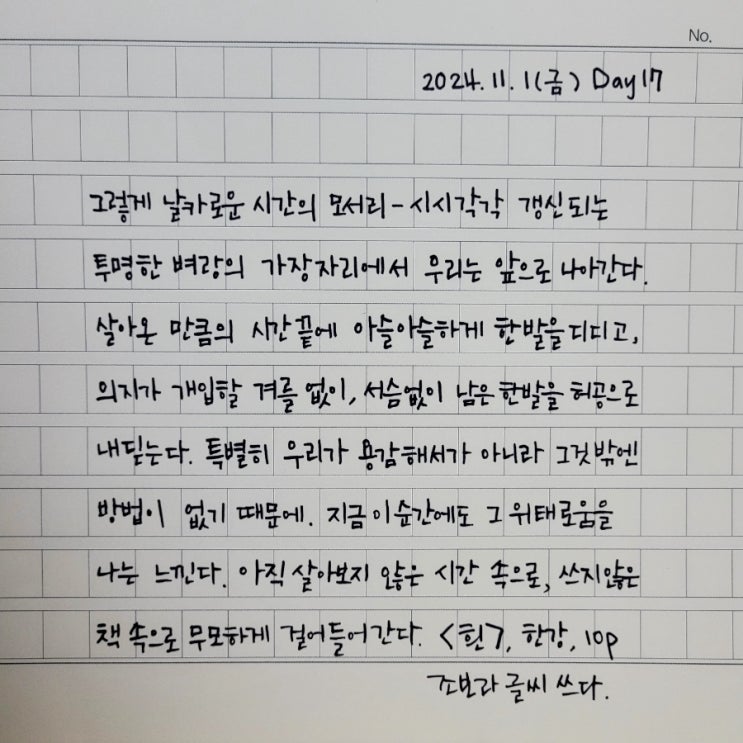 No.
2024. 11. 1(금) Day17
그렇게 날카로운 시간의 모서리 - 시시각각 갱신되는
투명한 벼랑의 가장자리에서 우리는 앞으로 나아간다.
살아온 만큼의 시간 끝에 아슬아슬하게 한발을 디디고,
의지가 개입할 겨를 없이, 서슴없이 남은 한발을 허공으로
내딛는다. 특별히 우리가 용감해서가 아니라 그것밖엔
방법이 없기 때문에. 지금 이 순간에도 그 위태로움을
나는 느낀다. 아직 살아보지 않은 시간 속으로, 쓰지않은
책 속으로 무모하게 걸어들어간다. <흰>, 한강, 10p
조보라 글씨 쓰다.